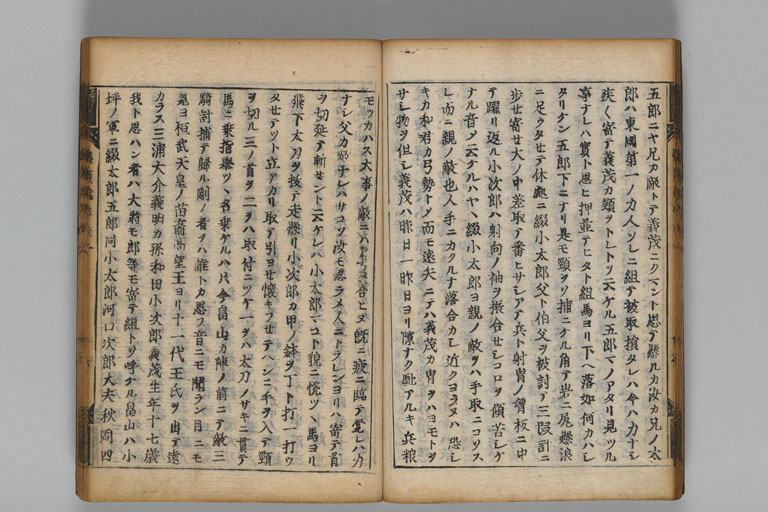 五郎ニヤ兄カ敵トテ義茂ニクマント思テ懸ルカ汝カ兄ノ太
郎ハ東國第一ノ力人ソレニ組テ被取損タレハ今ハ力ナシ
疾ク寄テ義茂カ頸ヲトレトソ云ケル五郎マノアタリ見ツル
事ナレハ實トト思ヒ押並テヒタト組馬ヨリ下ヘ落如何カハシ
タリケン五郎下ニナリ是モ頸ヲソ捕ニケル角テ岩ニ尻懸浪
ニ足ウタセテ休處ニ綴小太郎父ト伯父ヲ被討テ三段計ニ
歩セ寄セ大ノ中差取テ番ヒサシアテ兵ト射冑ノ胷板ニ中
テ躍リ返ル小次郎ハ射向ノ袖ヲ振合セシコロヲ傾苦シケ
ナル音ノ云ケルハヤヽ綴小太郎ヨ親ノ敵ヲハ手取ニコソス
レ而ニ親ノ敵也人手ニカクルナ落合カシ近クヨラヌハ恐シ
キカ和君カ弓勢トソ而モ遠矢ニテハ義茂カ冑ヲハヨモトヲ
サシ物ヲ但シ義茂ハ昨日一昨日ヨリ隙ナク馳アルキ兵粮
モツカハス大事ノ敵ニハ 合ヒヌ既ニ疲ニ臨テ覺レハ力
ナシ父カ ナレハサコソ汝モ思ラメ人ニトラレンヨリハ寄テ首
ヲ切延テ斬セントソ云ケレハ小太郎マコト貌ニ悦ツヽ馬ヨリ
飛下太刀ヲ抜テ走懸リ小次郎カ甲ノ鉢ヲ丁ト打一打ウ
タセテツト立アカリ取テ引ヨセ懐キフセテヘシニ手ヲ入テ頸
ヲ切ル三ノ首ヲ二ヲハ取付ニツケ一ヲハ太刀ノサキニ貫テ
馬ニ乗指擧ツヽ名乗ケルハ只今畠山カ陣ノ前ニテ敵三
騎討捕テ歸ル剛ノ者ヲハ誰トカ思フ音ニモ聞ラン目ニモ
見ヨ桓武天皇ノ苗裔高望王ヨリ十一代王氏ヲ出テ遠
カラス三浦大介義明カ孫和田小次郎義茂生年十七歳
我ト思ハン者ハ大將モ郎等モ寄テ組トソ呼ケル畠山ハ小
坪ノ軍ニ綴太郎五郎同小太郎河口次郎大夫秋岡四